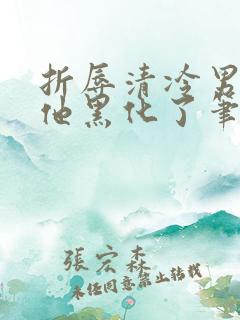 折辱清冷男
他黑化了筆
張宏森
未经同意禁止转载